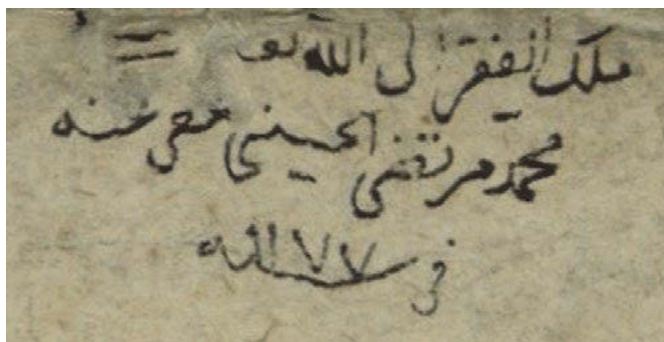 ملك الفقير الى الله تعـ
محمد مرتضى الحسيني عفي عنه
في سنه ١١٧٧